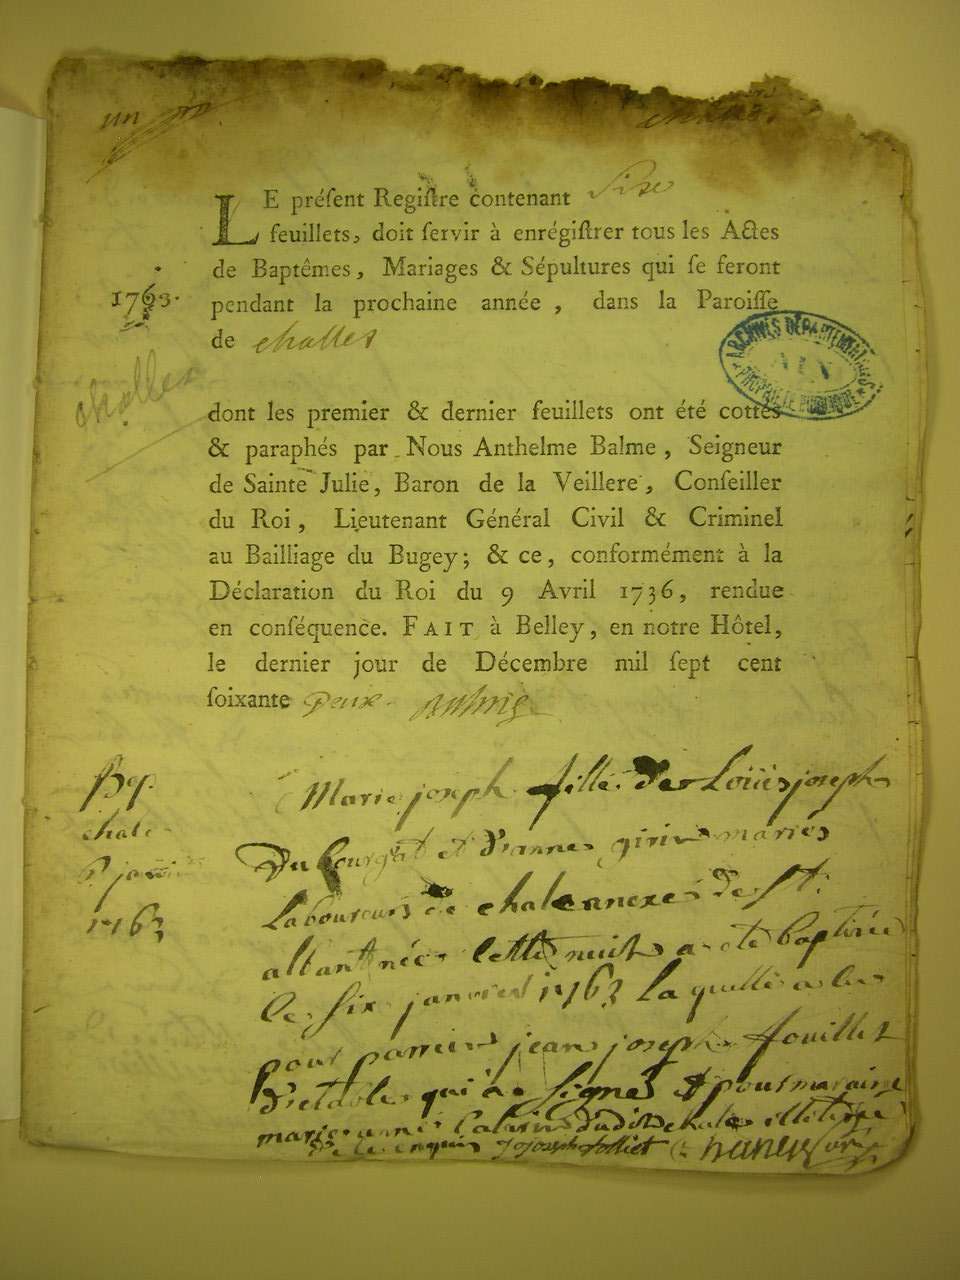 un
challes
LE préſent Regiſtre contenant Size
feuillets, doit ſervir à enrégiſtrer tous les Actes
de Baptêmes, Mariages & Sépultures qui ſe feront
1763.
pendant la prochaine année, dans la Paroiſſe
de challes
ARCHIVES DÉPARTEMENTALES
AIN
PROPRIÉTÉ PUBLIQUE
challes
dont les premier & dernier feuillets ont été cottés
& paraphés par Nous Anthelme Balme, Seigneur
de Sainte Julie, Baron de la Veillere, Conſeiller
du Roi, Lieutenant Général Civil & Criminel
au Bailliage du Bugey; & ce, conformément à la
Déclaration du Roi du 9 Avril 1736, rendue
en conſéquence. FAIT à Belley, en notre Hôtel,
le dernier jour de Décembre mil ſept cent
ſoixante Deux
Bap.
chale
6 janvier
1763
Marie joseph fille de Loüis joseph
Du bourgat et d'anne girin mariés
Laboureurs de chale annexe de St.
alban née cette nuit a été baptisée
le six janvier 1763 La quelle a eu
pour parrein jean joseph
d'etable qui a signé et pour maraine
marie dudit chale illiterée
de ce enquis J Joseph folliet